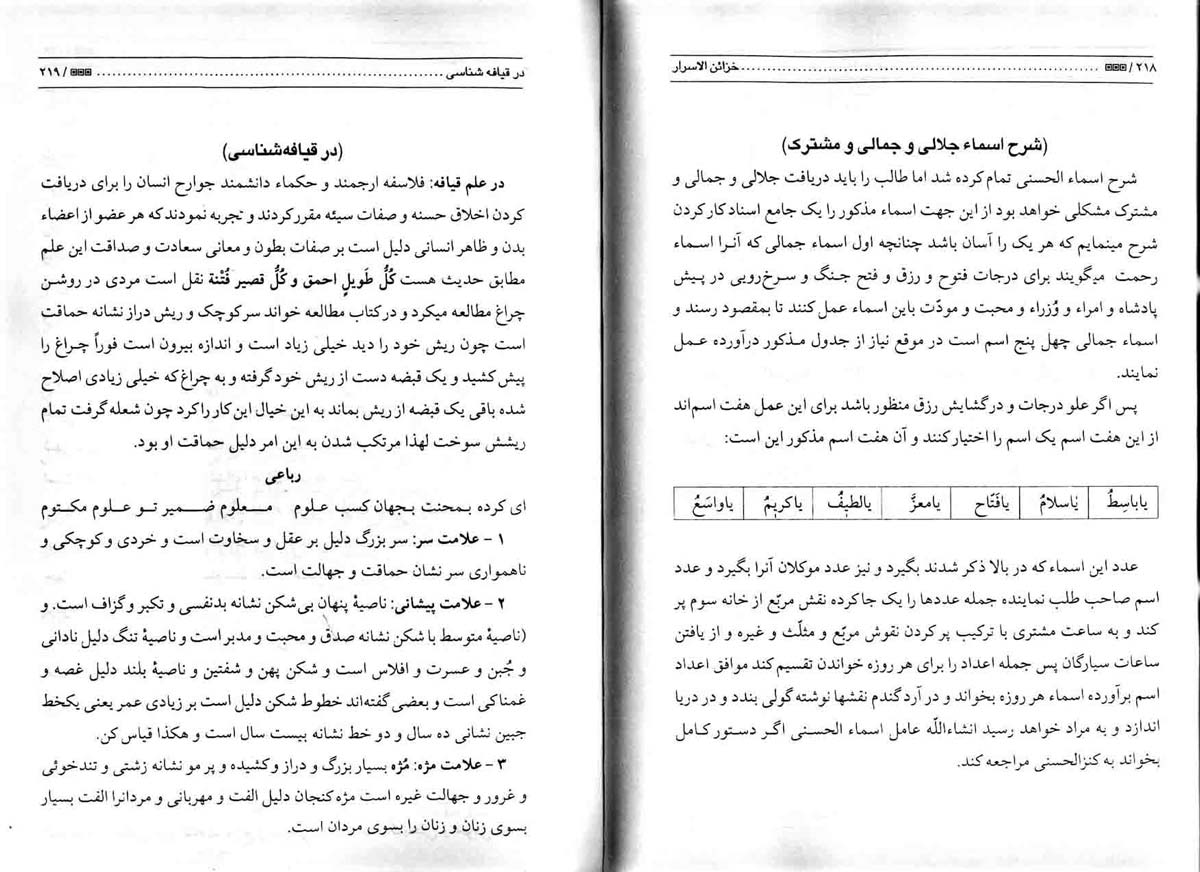 ۲۱۸ / خزائن الاسرار
(شرح اسماء جلالی و جمالی و مشترک)
شرح اسماء الحسنی تمام کرده شد اما طالب را باید دریافت جلالی و جمالی و
مشترک مشکلی خواهد بود از این جهت اسماء مذکور را یک جامع اسناد کار کردن
شرح مینمایم که هر یک را آسان باشد چنانچه اول اسماء جمالی که آنرا اسماء
رحمت میگویند برای درجات فتوح و رزق و فتح جنگ و سرخ‌رویی در پیش
پادشاه و امراء و وُزراء و محبت و مودّت باین اسماء عمل کنند تا بمقصود رسند و
اسماء جمالی چهل پنج اسم است در موقع نیاز از جدول مذکور درآورده عمل
نمایند.
پس اگر علو درجات و در گشایش رزق منظور باشد برای این عمل هفت اسم‌اند
از این هفت اسم یک اسم را اختیار کنند و آن هفت اسم مذکور این است:
یاباسِطُ یاسلامُ یافَتّاح یامعزَّ یالطیفُ یاکریمُ یاواسَعُ
عدد این اسماء که در بالا ذکر شدند بگیرد و نیز عدد موکلان آنرا بگیرد و عدد
اسم صاحب طلب نماینده جمله عددها را یک جا کرده نقش مربّع از خانه سوم پر
کند و به ساعت مشتری با ترکیب پر کردن نقوش مربّع و مثلّث و غیره و از یافتن
ساعات سیارگان پس جمله اعداد را برای هر روزه خواندن تقسیم کند موافق اعداد
اسم برآورده اسماء هر روزه بخواند و در آرد گندم نقشها نوشته گولی بندد و در دریا
اندازد و به مراد خواهد رسید انشاءاللّه عامل اسماء الحسنی اگر دستور کامل
بخواند به کنزالحسنی مراجعه کند.
در قیافه شناسی / ۲۱۹
(در قیافه‌شناسی)
در علم قیافه: فلاسفه ارجمند و حکماء دانشمند جوارح انسان را برای دریافت
کردن اخلاق حسنه و صفات سیئه مقرر کردند و تجربه نمودند که هر عضو از اعضاء
بدن و ظاهر انسانی دلیل است بر صفات بطون و معانی سعادت و صداقت این علم
مطابق حدیث هست کُلُّ طَویلٍ احمق و کُلُّ قصیر فُتْنة نقل است مردی در روشن
چراغ مطالعه میکرد و در کتاب مطالعه خواند سر کوچک و ریش دراز نشانه حماقت
است چون ریش خود را دید خیلی زیاد است و اندازه بیرون است فوراً چراغ را
پیش کشید و یک قبضه دست از ریش خود گرفته و به چراغ که خیلی زیادی اصلاح
شده باقی یک قبضه از ریش بماند به این خیال این کار را کرد چون شعله گرفت تمام
ریشش سوخت لهذا مرتکب شدن به این امر دلیل حماقت او بود.
رباعی
ای کرده بمحنت بجهان کسب علوم معلوم ضمیر تو علوم مکتوم
۱ - علامت سر: سر بزرگ دلیل بر عقل و سخاوت است و خردی و کوچکی و
ناهمواری سر نشان حماقت و جهالت است.
۲ - علامت پیشانی: ناصیهٔ پنهان بی‌شکن نشانه بدنفسی و تکیر و گزاف است. و
(ناصیهٔ متوسط با شکن نشانه صدق و محبت و مدبر است و ناصیهٔ تنگ دلیل نادانی
و جُبن و عسرت و افلاس است و شکن پهن و شفتین و ناصیهٔ بلند دلیل غصه و
غمناکی است و بعضی گفته‌اند خطوط شکن دلیل است بر زیادی عمر یعنی یکخط
جبین نشانی ده سال و دو خط نشانه بیست سال است و هکذا قیاس کن.
۳ - علامت مژه: مُژه بسیار بزرگ و دراز و کشیده و پر مو نشانه زشتی و تندخوئی
و غرور و جهالت غیره است مژه کنجان دلیل الفت و مهربانی و مردانرا الفت بسیار
بسوی زنان و زنان را بسوی مردان است.